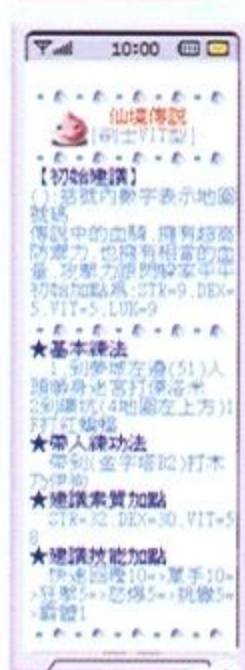 10:00
仙境傳說
[劍士VIT型]
【初始建議】
():括號內數字表示地圖
號碼
傳說中的血騎,擁有超高
防禦力,也擁有相當的血
量,攻擊力
初始加點為:STR=9,DEX=
5,VIT=5,LUK=9
★基本練法
1.到夢城左邊(51)人
面獅身迷宮打
2到礦坑(4地圖左上方)1
F打紅蝙蝠
★帶人練功法
帶到(金字塔B2)打木
乃伊
★建議素質加點
STR=32,DEX=30,VIT=5
8
★建議技能加點
快速回復10=>單手10=
>狂擊5=>怒爆5=>挑釁5=
>霸體1